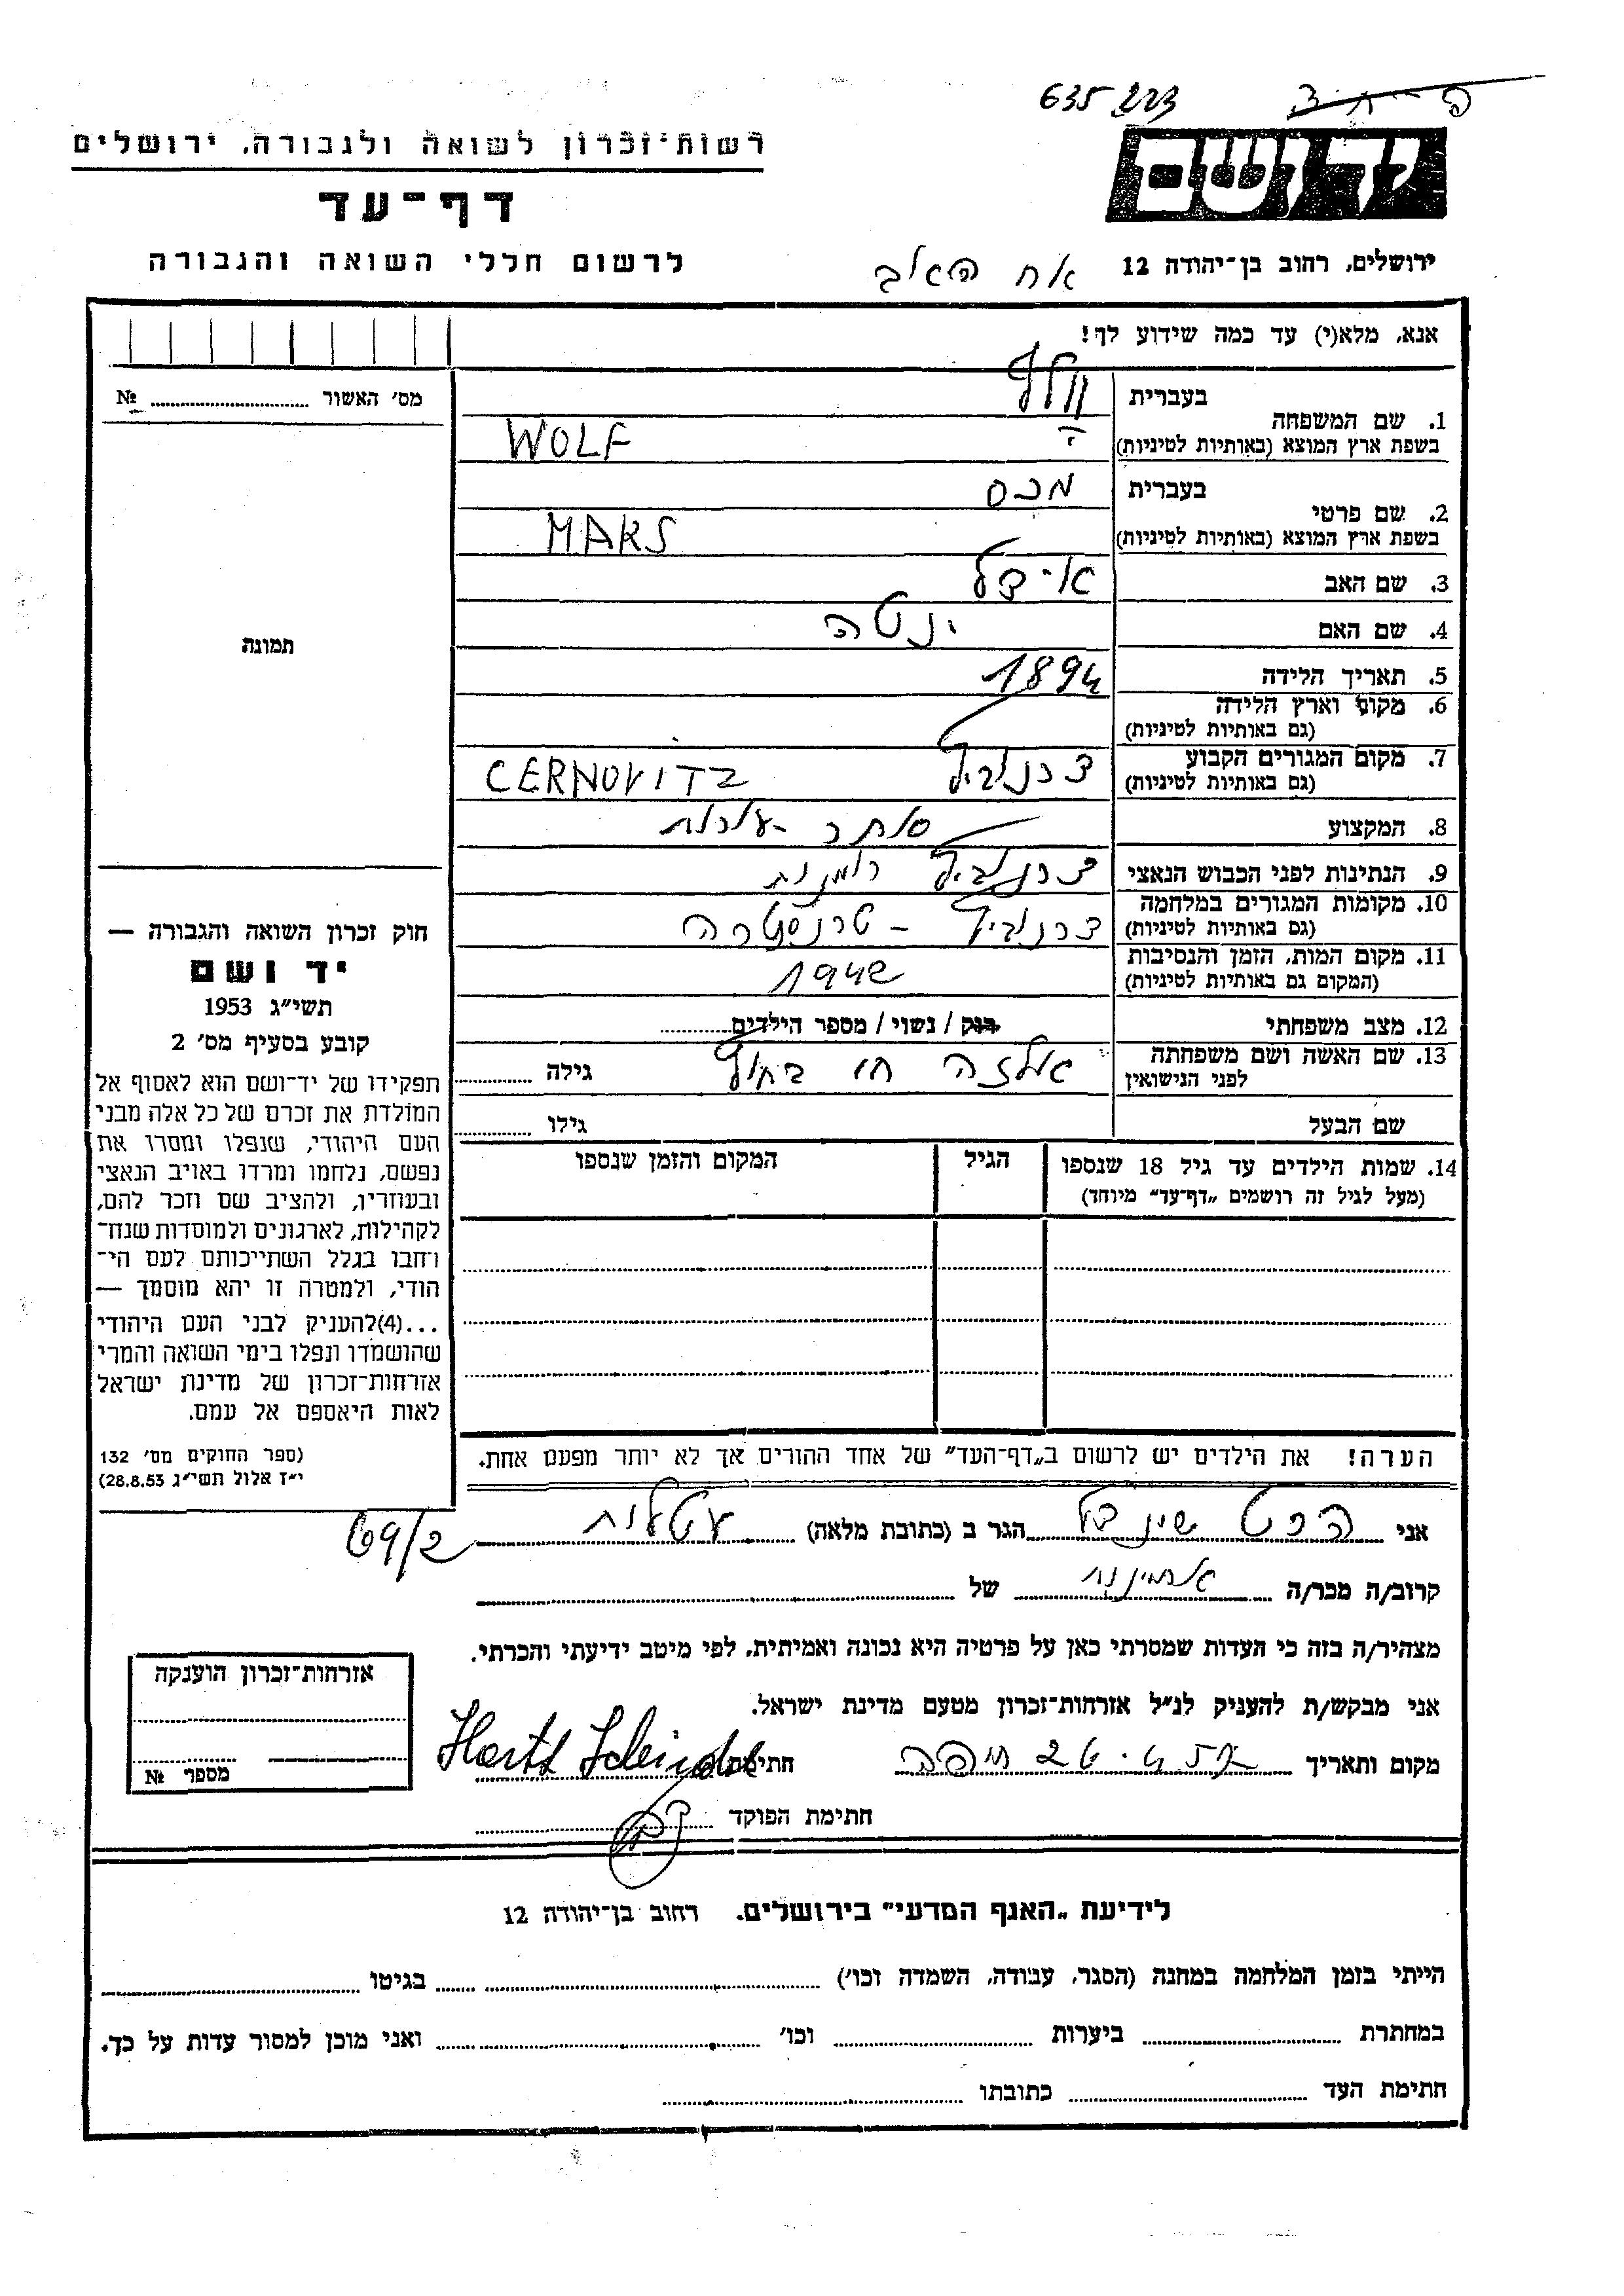 635 223
רשות־זכרון לשואה ולגבורה, ירושלים
יד ושם
דף־עד
לרשום חללי השואה והגבורה
ירושלים, רחוב בן־יהודה 12
אח האב
אנא, מלא(י) עד כמה שידוע לך!
מס׳ האשור № 
1. שם המשפחה
בעברית וולף
בשפת ארץ המוצא (באותיות לטיניות) WOLF
2. שם פרטי
בעברית מכס
בשפת ארץ המוצא (באותיות לטיניות) MAKS
3. שם האב אידל
4. שם האם ינטה
5. תאריך הלידה 1894
6. מקום וארץ הלידה
(גם באותיות לטיניות)
7. מקום המגורים הקבוע
(גם באותיות לטיניות) CERNOVITZ
8. המקצוע סוחר
9. הנתינות לפני הכבוש הנאצי רומנית
10. מקומות המגורים במלחמה
(גם באותיות לטיניות) טרנסטריה
11. מקום המות, הזמן והנסיבות
(המקום גם באותיות לטיניות) 1942
12. מצב משפחתי רווק / נשוי / מספר הילדים
13. שם האשה ושם משפחתה
לפני הנישואין
חי בחול
גילה
שם הבעל גילו
14. שמות הילדים עד גיל 18 שנספו
(מעל לגיל זה רושמים „דף־עד״ מיוחד)
הגיל
המקום והזמן שנספו
תמונה
חוק זכרון השואה והגבורה —
יד ושם
תשי״ג 1953
קובע בסעיף מס׳ 2
תפקידו של יד־ושם הוא לאסוף אל
המולדת את זכרם של כל אלה מבני
העם היהודי, שנפלו ומסרו את
נפשם, נלחמו ומרדו באויב הנאצי
ובעוזריו, ולהציב שם וזכר להם,
לקהילות, לארגונים ולמוסדות שנח־
רחבו בגלל השתייכותם לעם הי־
הודי, ולמטרה זו יהא מוסמך —
...(4)להעניק לבני העם היהודי
שהושמדו ונפלו בימי השואה והמרי
אזרחות־זכרון של מדינת ישראל
לאות היאספם אל עמם.
(ספר החוקים מס׳ 132
י״ז אלול תשי״ג 28.8.53)
הערה! את הילדים יש לרשום ב„דף־העד״ של אחד ההורים אך לא יותר מפעם אחת.
אני הרט שינדל הגר ב (כתובת מלאה) עטלית 69/2
קרוב/ה מכר/ה של
מצהיר/ה בזה כי העדות שמסרתי כאן על פרטיה היא נכונה ואמיתית, לפי מיטב ידיעתי והכרתי.
אני מבקש/ת להעניק לנ״ל אזרחות־זכרון מטעם מדינת ישראל.
מקום ותאריך חיפה חתימת
חתימת הפוקד
אזרחות־זכרון הוענקה
מספר №
לידיעת „האגף המדעי״ בירושלים. רחוב בן־יהודה 12
הייתי בזמן המלחמה במחנה (הסגר, עבודה, השמדה וכו׳) בגיטו
במחתרת ביערות וכו׳ ואני מוכן למסור עדות על כך.
חתימת העד כתובתו